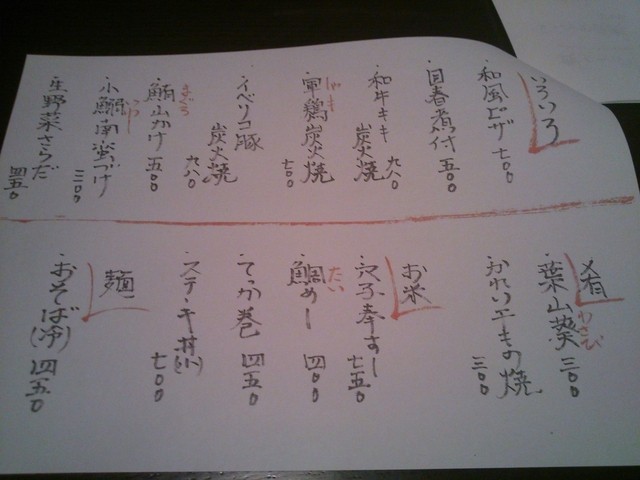 いろいろ
・和風ピザ 七〇〇
・目春煮付 五〇〇
・和牛モモ
炭火焼 九八〇
・軍鶏炭火焼 七〇〇
しゃも
・イベリコ豚
炭火焼 九八〇
・鮪山かけ 五〇〇
まぐろ
・小鯛南蛮づけ 三〇〇
・生野菜さらだ 四五〇
肴
・葉山葵 三〇〇
わさび
・かれいエキの焼 三〇〇
お米
・穴子奉すし 七五〇
・鯛めし 四〇〇
たい
・てっか巻 四五〇
・ステーキ丼(小) 七〇〇
麺
・おそば(冷) 四五〇